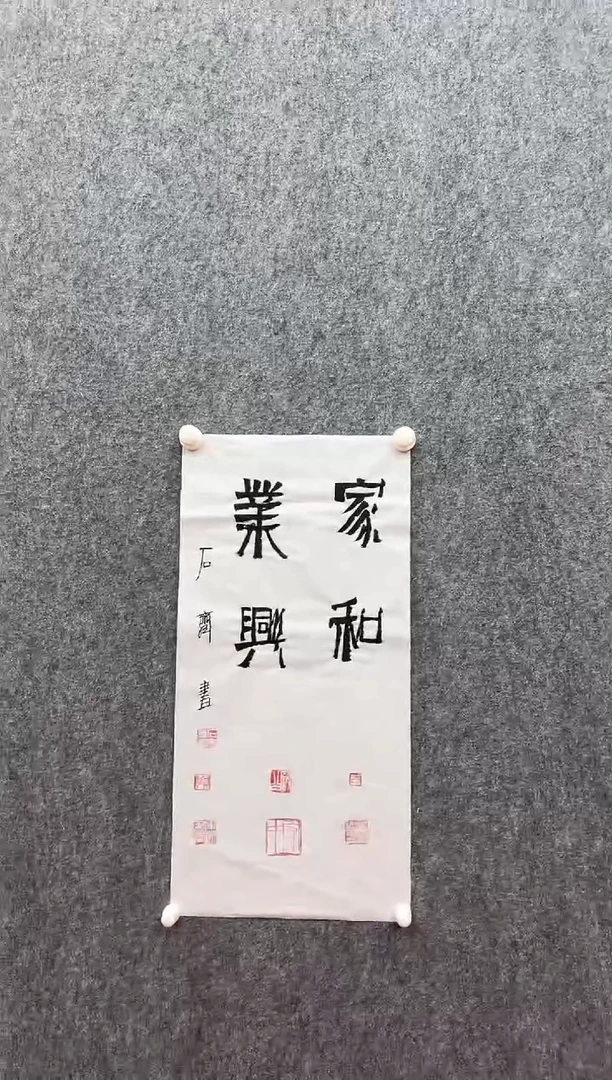 家和
業興
石齋書